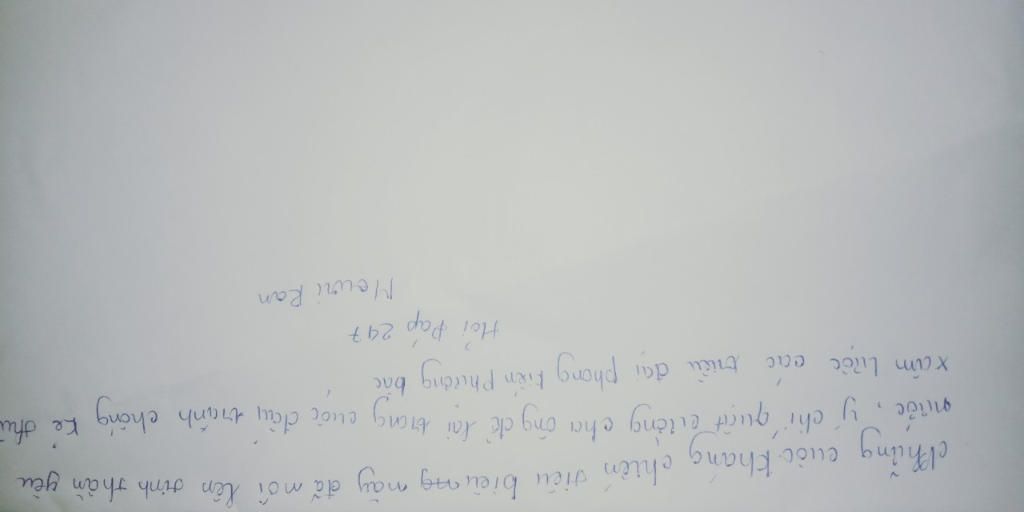 Những cuộc kháng chiến tiêu biểu này đã mới lên tinh thần yêu
nước, ý chí quật cường cha ông để lại trong cuộc đấu tranh chống kẻ thù
xâm lược các triều đại phong kiến Phương bắc
Hỏi Đáp 247
Mouri Ran